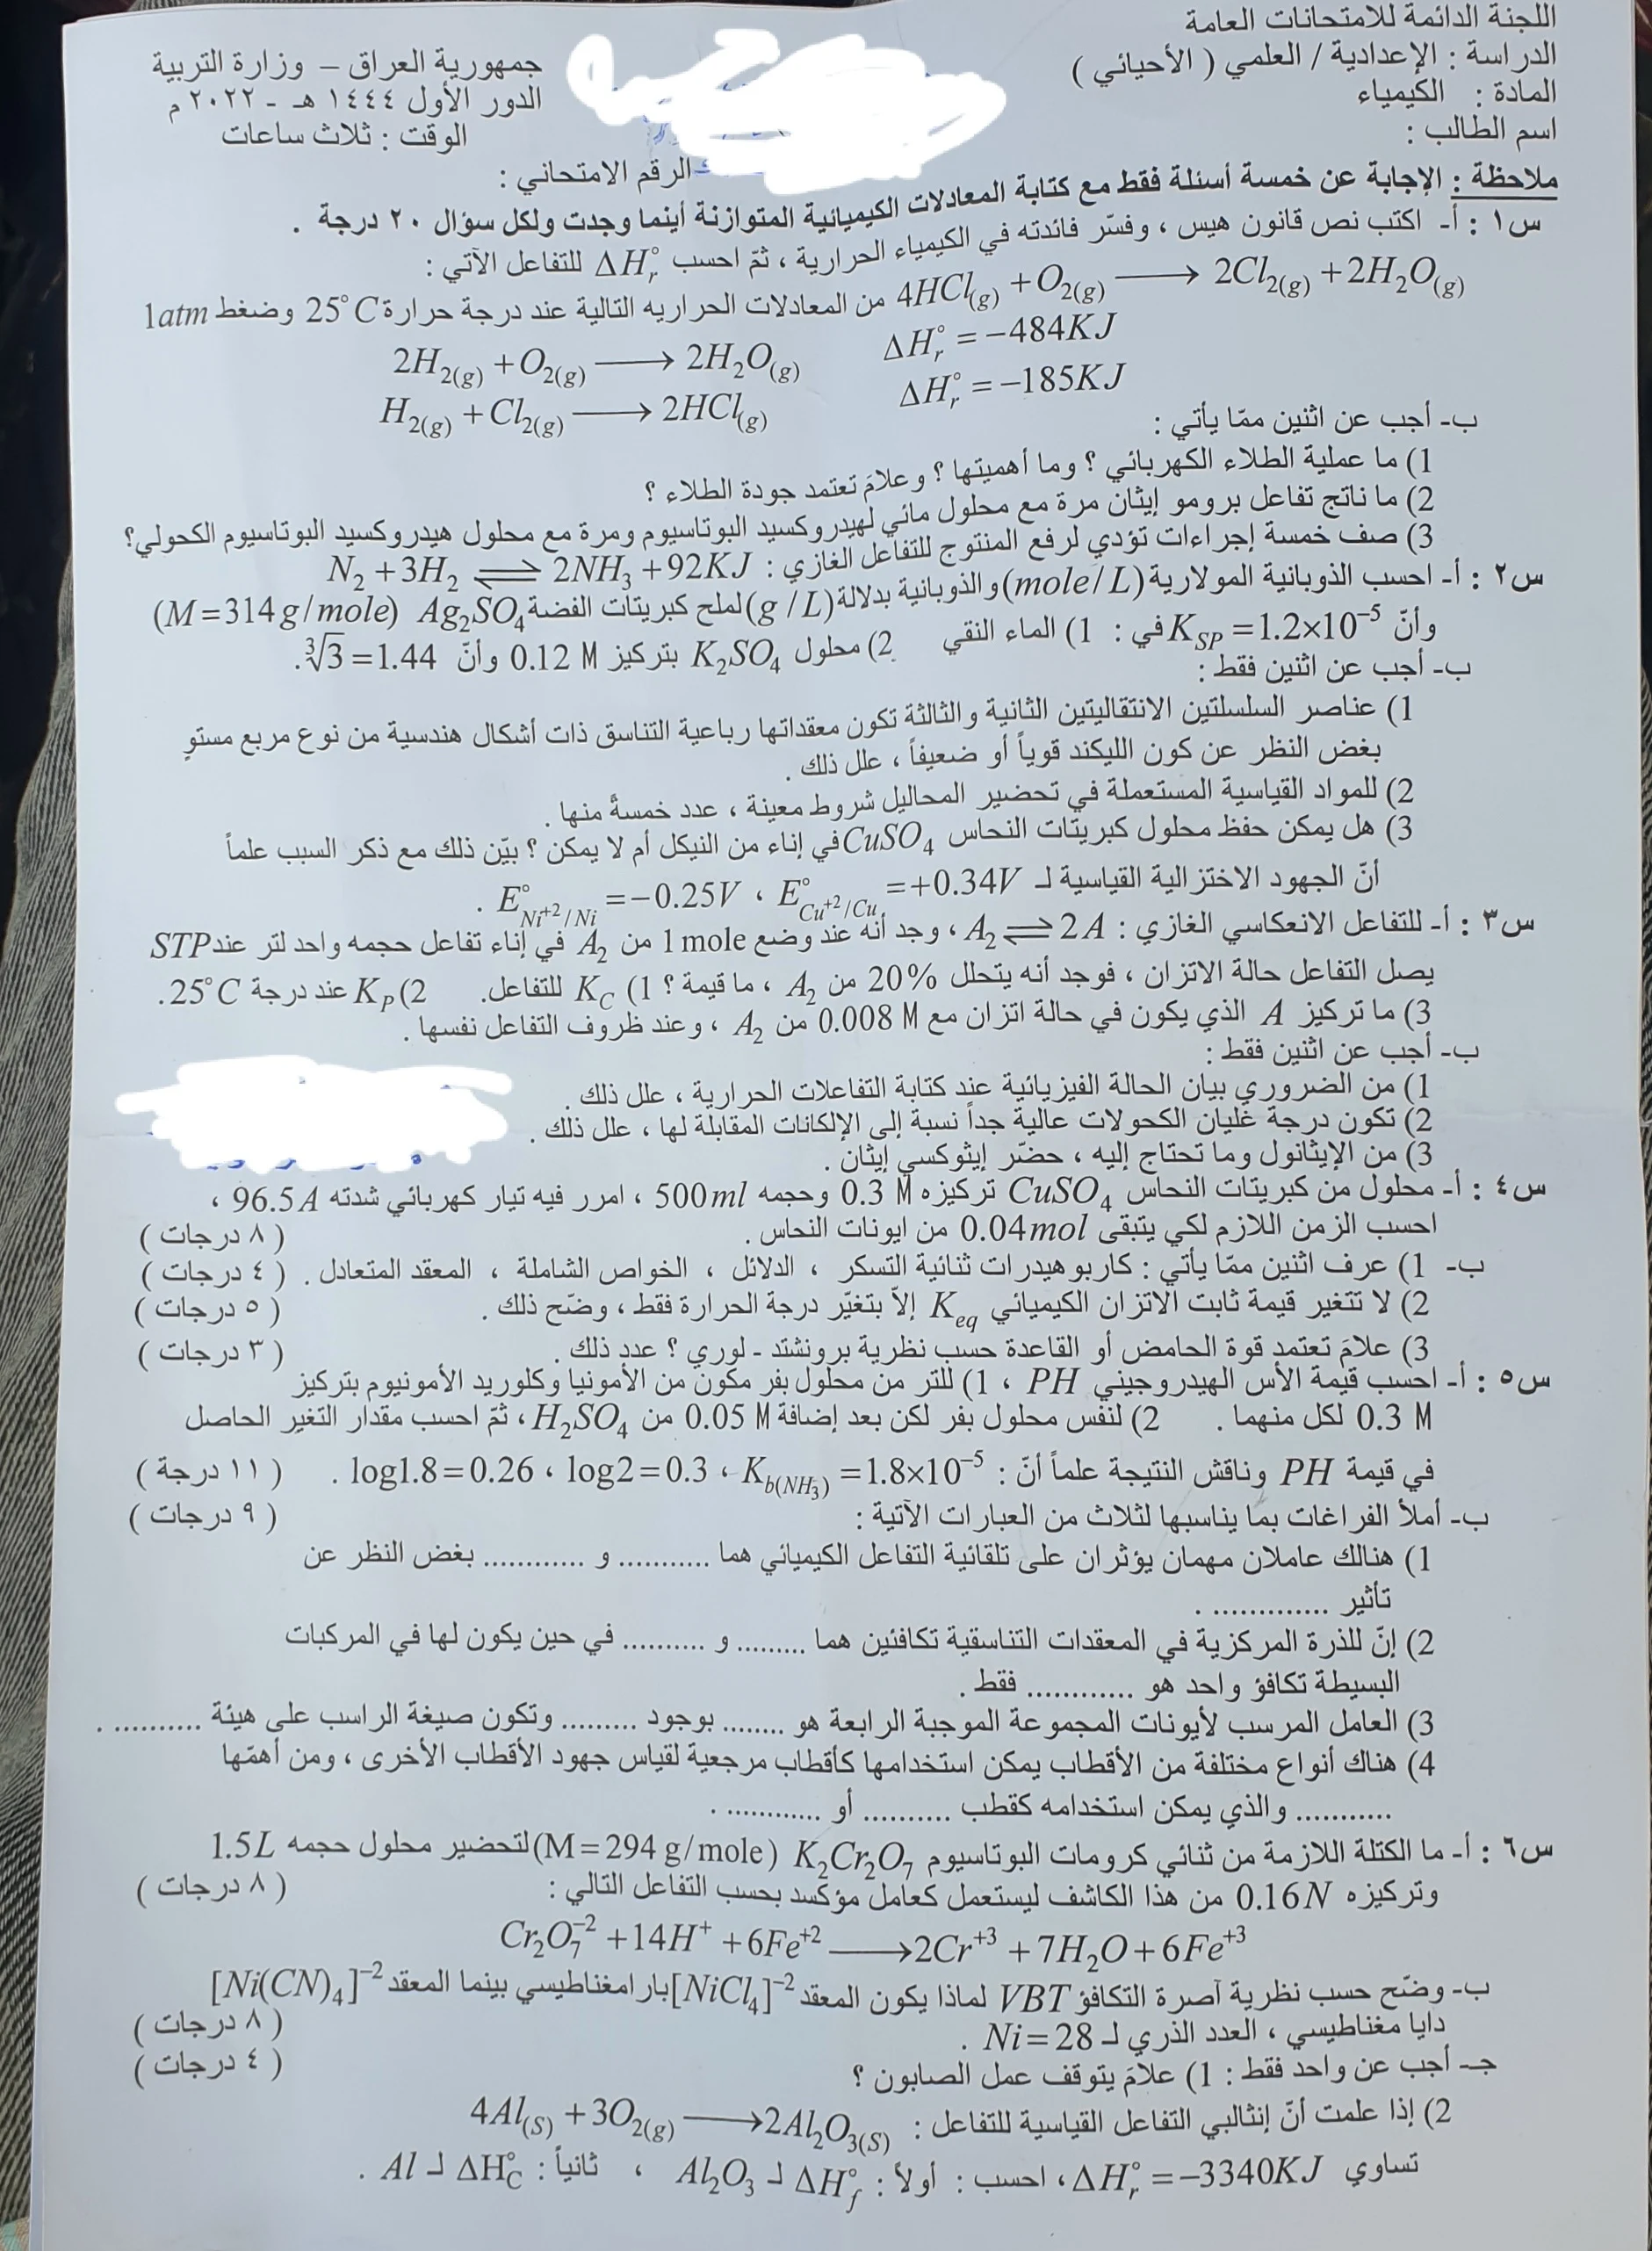 اللجنة الدائمة للامتحانات العامة
الدراسة : الإعدادية / العلمي ( الأحيائي )
المادة : الكيمياء
اسم الطالب :
جمهورية العراق – وزارة التربية
الدور الأول ١٤٤٤ هـ - ٢٠٢٢ م
الوقت : ثلاث ساعات
الرقم الامتحاني :
ملاحظة : الإجابة عن خمسة أسئلة فقط مع كتابة المعادلات الكيميائية المتوازنة أينما وجدت ولكل سؤال ٢٠ درجة .
س١ : أ- اكتب نص قانون هيس ، وفسّر فائدته في الكيمياء الحرارية ، ثمّ احسب ΔH°r للتفاعل الآتي :
4HCl(g) + O2(g) ⟶ 2Cl2(g) + 2H2O(g)
من المعادلات الحراريه التالية عند درجة حرارة 25°C وضغط 1atm
2H2(g) + O2(g) ⟶ 2H2O(g) ΔH°r = −484KJ
H2(g) + Cl2(g) ⟶ 2HCl(g) ΔH°r = −185KJ
ب- أجب عن اثنين ممّا يأتي :
1) ما عملية الطلاء الكهربائي ؟ وما أهميتها ؟ وعلامَ تعتمد جودة الطلاء ؟
2) ما ناتج تفاعل برومو إيثان مرة مع محلول مائي لهيدروكسيد البوتاسيوم ومرة مع محلول هيدروكسيد البوتاسيوم الكحولي؟
3) صف خمسة إجراءات تؤدي لرفع المنتوج للتفاعل الغازي : N2 + 3H2 ⇌ 2NH3 + 92KJ
س٢ : أ- احسب الذوبانية المولارية (mole/L) والذوبانية بدلالة (g/L) لملح كبريتات الفضة Ag2SO4 (M=314g/mole)
وأنّ KSP = 1.2×10−5 في : 1) الماء النقي 2) محلول K2SO4 بتركيز 0.12 M وأنّ ∛3 = 1.44 .
ب- أجب عن اثنين فقط :
1) عناصر السلسلتين الانتقاليتين الثانية والثالثة تكون معقداتها رباعية التناسق ذات أشكال هندسية من نوع مربع مستوٍ
بغض النظر عن كون الليكند قوياً أو ضعيفاً ، علل ذلك .
2) للمواد القياسية المستعملة في تحضير المحاليل شروط معينة ، عدد خمسةً منها .
3) هل يمكن حفظ محلول كبريتات النحاس CuSO4 في إناء من النيكل أم لا يمكن ؟ بيّن ذلك مع ذكر السبب علماً
أنّ الجهود الاختزالية القياسية لـ E°Cu+2/Cu = +0.34V ، E°Ni+2/Ni = −0.25V .
س٣ : أ- للتفاعل الانعكاسي الغازي : A2 ⇌ 2A ، وجد أنه عند وضع 1 mole من A2 في إناء تفاعل حجمه واحد لتر عند STP
يصل التفاعل حالة الاتزان ، فوجد أنه يتحلل 20% من A2 ، ما قيمة ؟ 1) KC للتفاعل. 2) KP عند درجة 25°C.
3) ما تركيز A الذي يكون في حالة اتزان مع 0.008 M من A2 ، وعند ظروف التفاعل نفسها .
ب- أجب عن اثنين فقط :
1) من الضروري بيان الحالة الفيزيائية عند كتابة التفاعلات الحرارية ، علل ذلك .
2) تكون درجة غليان الكحولات عالية جداً نسبة إلى الإلكانات المقابلة لها ، علل ذلك .
3) من الإيثانول وما تحتاج إليه ، حضّر إيثوكسي إيثان .
س٤ : أ- محلول من كبريتات النحاس CuSO4 تركيزه 0.3 M وحجمه 500ml ، امرر فيه تيار كهربائي شدته 96.5A ،
احسب الزمن اللازم لكي يتبقى 0.04mol من ايونات النحاس . ( ٨ درجات )
ب- 1) عرف اثنين ممّا يأتي : كاربوهيدرات ثنائية التسكر ، الدلائل ، الخواص الشاملة ، المعقد المتعادل . ( ٤ درجات )
2) لا تتغير قيمة ثابت الاتزان الكيميائي Keq إلاّ بتغيّر درجة الحرارة فقط ، وضّح ذلك . ( ٥ درجات )
3) علامَ تعتمد قوة الحامض أو القاعدة حسب نظرية برونشتد - لوري ؟ عدد ذلك . ( ٣ درجات )
س٥ : أ- احسب قيمة الأس الهيدروجيني PH ، 1) للتر من محلول بفر مكون من الأمونيا وكلوريد الأمونيوم بتركيز
0.3 M لكل منهما . 2) لنفس محلول بفر لكن بعد إضافة 0.05 M من H2SO4 ، ثمّ احسب مقدار التغير الحاصل
في قيمة PH وناقش النتيجة علماً أنّ : Kb(NH3) = 1.8×10−5 ، log2 = 0.3 ، log1.8 = 0.26 . ( ١١ درجة )
ب- أملأ الفراغات بما يناسبها لثلاث من العبارات الآتية : ( ٩ درجات )
1) هنالك عاملان مهمان يؤثران على تلقائية التفاعل الكيميائي هما ........... و ............ بغض النظر عن
تأثير .............. .
2) إنّ للذرة المركزية في المعقدات التناسقية تكافئين هما ......... و .......... في حين يكون لها في المركبات
البسيطة تكافؤ واحد هو ............. فقط .
3) العامل المرسب لأيونات المجموعة الموجبة الرابعة هو ........ بوجود ......... وتكون صيغة الراسب على هيئة ........... .
4) هناك أنواع مختلفة من الأقطاب يمكن استخدامها كأقطاب مرجعية لقياس جهود الأقطاب الأخرى ، ومن أهمّها
............ والذي يمكن استخدامه كقطب ........... أو ............ .
س٦ : أ- ما الكتلة اللازمة من ثنائي كرومات البوتاسيوم K2Cr2O7 (M=294 g/mole) لتحضير محلول حجمه 1.5L
وتركيزه 0.16N من هذا الكاشف ليستعمل كعامل مؤكسد بحسب التفاعل التالي : ( ٨ درجات )
Cr2O7−2 + 14H+ + 6Fe+2 ⟶ 2Cr+3 + 7H2O + 6Fe+3
ب- وضّح حسب نظرية آصرة التكافؤ VBT لماذا يكون المعقد [NiCl4]−2 بارامغناطيسي بينما المعقد [Ni(CN)4]−2
دايا مغناطيسي ، العدد الذري لـ Ni = 28 . ( ٨ درجات )
جـ- أجب عن واحد فقط : 1) علامَ يتوقف عمل الصابون ؟ ( ٤ درجات )
2) إذا علمت أنّ إنثالبي التفاعل القياسية للتفاعل : 4Al(S) + 3O2(g) ⟶ 2Al2O3(S)
تساوي ΔH°r = −3340KJ ، احسب : أولاً : ΔH°f لـ Al2O3 ، ثانياً : ΔH°C لـ Al .